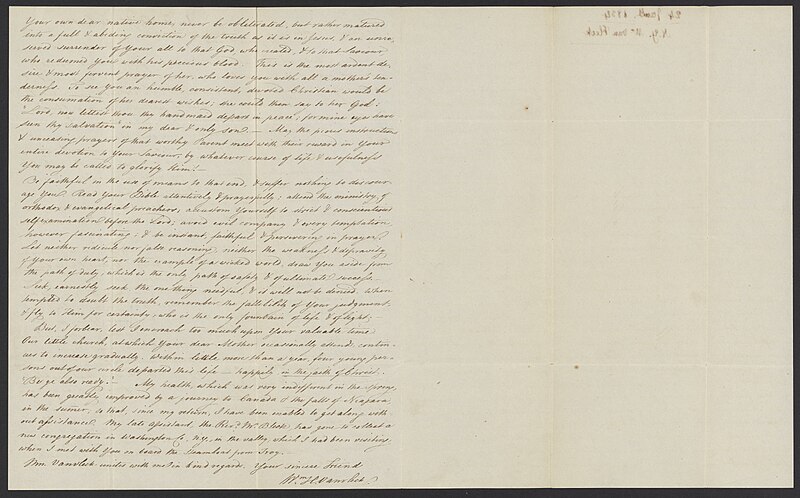 Your own dear native home, never be obliterated, but rather matured
into a full & abiding conviction of the truth as it is in Jesus, & an unre-
served surrender of Your all to that God, who created, & to that Saviour
who redeemed You with his precious blood. This is the most ardent de-
sire & most fervent prayer of her, who loves You with all a mother's ten-
derness. To see You an humble, consistent, devoted Christian would be
the consummation of her dearest wishes, she could then say to her God:
"Lord, now lettest thou thy handmaid depart in peace, for mine eyes have
seen thy salvation in my dear & only son." — May the pious instructions
& unceasing prayers of that worthy Parent meet with their reward in Your
entire devotion to Your Saviour, by whatever course of life & usefulness
You may be called to glorify Him! —
Be faithful in the use of means to that end, & suffer nothing to discour-
age You. Read Your Bible attentively & prayerfully; attend the ministry of
orthodox & evangelical preachers; accustom Yourself to strict & conscientious
self examination before the Lord; avoid evil company & every temptation,
however fascinating; & be instant, faithful & persevering in prayer.
Let neither ridicule nor false reasoning, neither the weakness & depravity
of Your own heart, nor the example of a wicked world, draw You aside from
the path of duty, which is the only path of safety & of ultimate success.
Seek, earnestly seek the one thing needful, & it will not be denied. When
tempted to doubt the truth, remember the fallibility of Your judgment,
& fly to Him for certainty, who is the only fountain of life & of light.
But, I forbear, lest I encroach too much upon Your valuable time.
Our little church, at which Your dear Mother occasionally attends, contin-
ues to increase gradually. Within little more than a year, four young per-
sons out of our circle departed this life — happily in the faith of Christ.
Be ye also ready! — My health, which was very indifferent in the spring,
has been greatly improved by a journey to Canada & the falls of Niagara
in the summer, so that, since my return, I have been enabled to get along with-
out assistance. My late assistant, the Rev'd Mr. has gone to collect a
new congregation in Washington Co. N.Y. in the valley, which I had been visiting
when I met with You on board the Steamboat from Troy.
Mrs. Vanvleck unites with me in kind regards. Your sincere friend
Wm. H. Vanvleck.
24 1834
N.Y. Wm Van Vleck